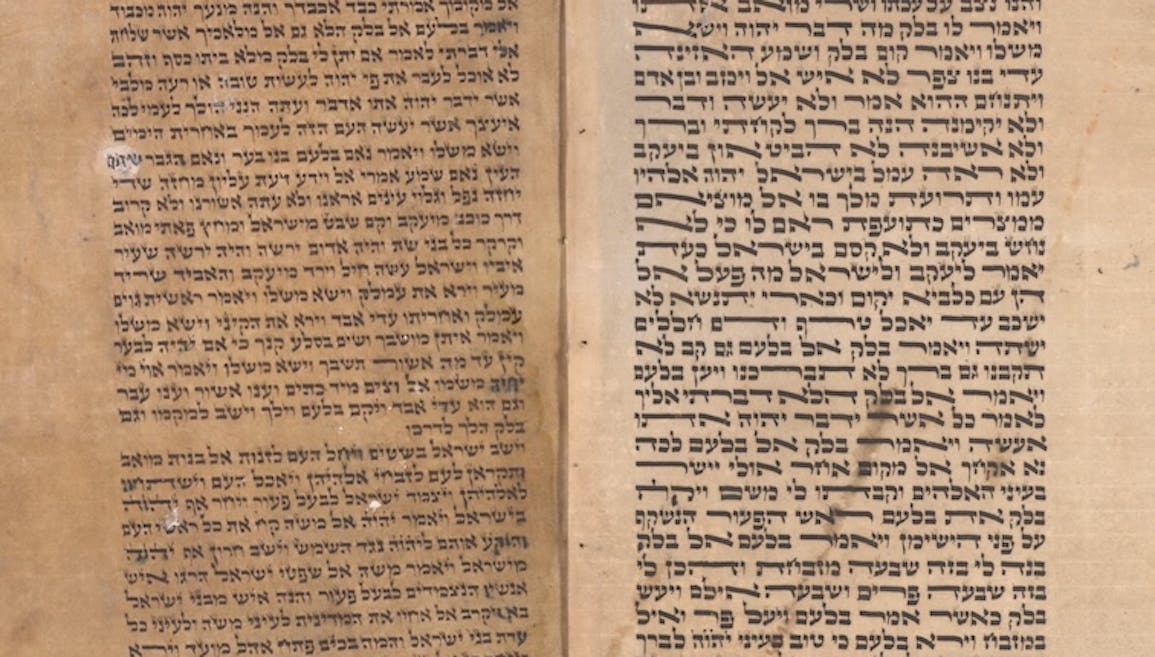 והנו נצב על עלתו ושרי מואב אתו
ויאמר לו בלק מה דבר יהוה וישא
משלו ויאמר קום בלק ושמע האזינה
עדי בנו צפר לא איש אל ויכזב ובן אדם
ויתנחם ההוא אמר ולא יעשה ודבר
ולא יקימנה הנה ברך לקחתי וברך
ולא אשיבנה לא הביט און ביעקב
ולא ראה עמל בישראל יהוה אלהיו
עמו ותרועת מלך בו אל מוציאם
ממצרים כתועפת ראם לו כי לא
נחש ביעקב ולא קסם בישראל כעת
יאמר ליעקב ולישראל מה פעל אל
הן עם כלביא יקום וכארי יתנשא לא
ישכב עד יאכל טרף ודם חללים
ישתה ויאמר בלק אל בלעם גם קב לא
תקבנו גם ברך לא תברכנו ויען בלעם
ויאמר אל בלק הלא דברתי אליך
לאמר כל אשר ידבר יהוה אתו
אעשה ויאמר בלק אל בלעם לכה
נא אקחך אל מקום אחר אולי יישר
בעיני האלהים וקבתו לי משם ויקח
בלק את בלעם ראש הפעור הנשקף
על פני הישימן ויאמר בלעם אל בלק
בנה לי בזה שבעה מזבחת והכן לי
בזה שבעה פרים ושבעה אילם ויעש
בלק כאשר אמר בלעם ויעל פר ואיל
במזבח וירא בלעם כי טוב בעיני יהוה לברך
אל מקומך אמרתי כבד אכבדך והנה מנעך יהוה מכבוד
ויאמר בלעם אל בלק הלא גם אל מלאכיך אשר שלחת
אלי דברתי לאמר אם יתן לי בלק מלא ביתו כסף וזהב
לא אוכל לעבר את פי יהוה לעשות טובה או רעה מלבי
אשר ידבר יהוה אתו אדבר ועתה הנני הולך לעמי לכה
איעצך אשר יעשה העם הזה לעמך באחרית הימים
וישא משלו ויאמר נאם בלעם בנו בער ונאם הגבר שתם
העין נאם שמע אמרי אל וידע דעת עליון מחזה שדי
יחזה נפל וגלוי עינים אראנו ולא עתה אשורנו ולא קרוב
דרך כוכב מיעקב וקם שבט מישראל ומחץ פאתי מואב
וקרקר כל בני שת והיה אדום ירשה והיה ירשה שעיר
איביו וישראל עשה חיל וירד מיעקב והאביד שריד
מעיר וירא את עמלק וישא משלו ויאמר ראשית גוים
עמלק ואחריתו עדי אבד וירא את הקיני וישא משלו
ויאמר איתן מושבך ושים בסלע קנך כי אם יהיה לבער
קין עד מה אשור תשבך וישא משלו ויאמר אוי מי
יחיה משמו אל וצים מיד כתים וענו אשור וענו עבר
וגם הוא עדי אבד ויקם בלעם וילך וישב למקמו וגם
בלק הלך לדרכו
וישב ישראל בשטים ויחל העם לזנות אל בנות מואב
ותקראן לעם לזבחי אלהיהן ויאכל העם וישתחוו
לאלהיהן ויצמד ישראל לבעל פעור ויחר אף יהוה
בישראל ויאמר יהוה אל משה קח את כל ראשי העם
והוקע אותם ליהוה נגד השמש וישב חרון אף יהוה
מישראל ויאמר משה אל שפטי ישראל הרגו איש
אנשיו הנצמדים לבעל פעור והנה איש מבני ישראל
בא ויקרב אל אחיו את המדינית לעיני משה ולעיני כל
עדת בני ישראל והמה בכים פתח אהל מועד וירא